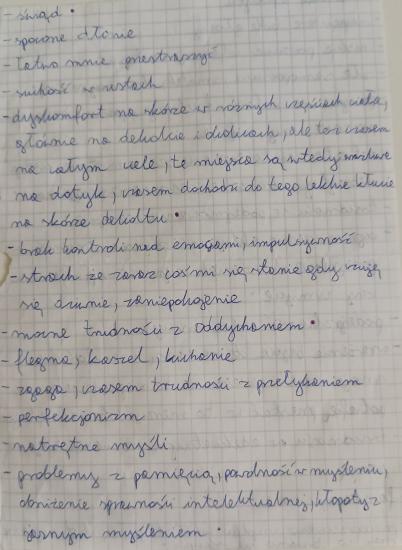 - świąd •
- spocone dłonie
- łatwo mnie przestraszyć
- suchość w ustach
- dyskomfort na skórze w różnych częściach ciała,
głównie na dekolcie i dłoniach, ale też czasem
na całym ciele, te miejsca są wtedy wrażliwe
na dotyk, czasem dochodzi do tego lekkie kłucie
na skórze dekoltu •
- brak kontroli nad emocjami, impulsywność
- strach że zaraz coś mi się stanie gdy czuję
się dziwnie, zaniepokojenie
- mocne trudności z oddychaniem •
- flegma, kaszel, kichanie
- zgaga, czasem trudności z przełykaniem
- perfekcjonizm
- natrętne myśli
- problemy z pamięcią, w myśleniu,
obniżenie sprawności intelektualnej, kłopoty z
jasnym myśleniem •